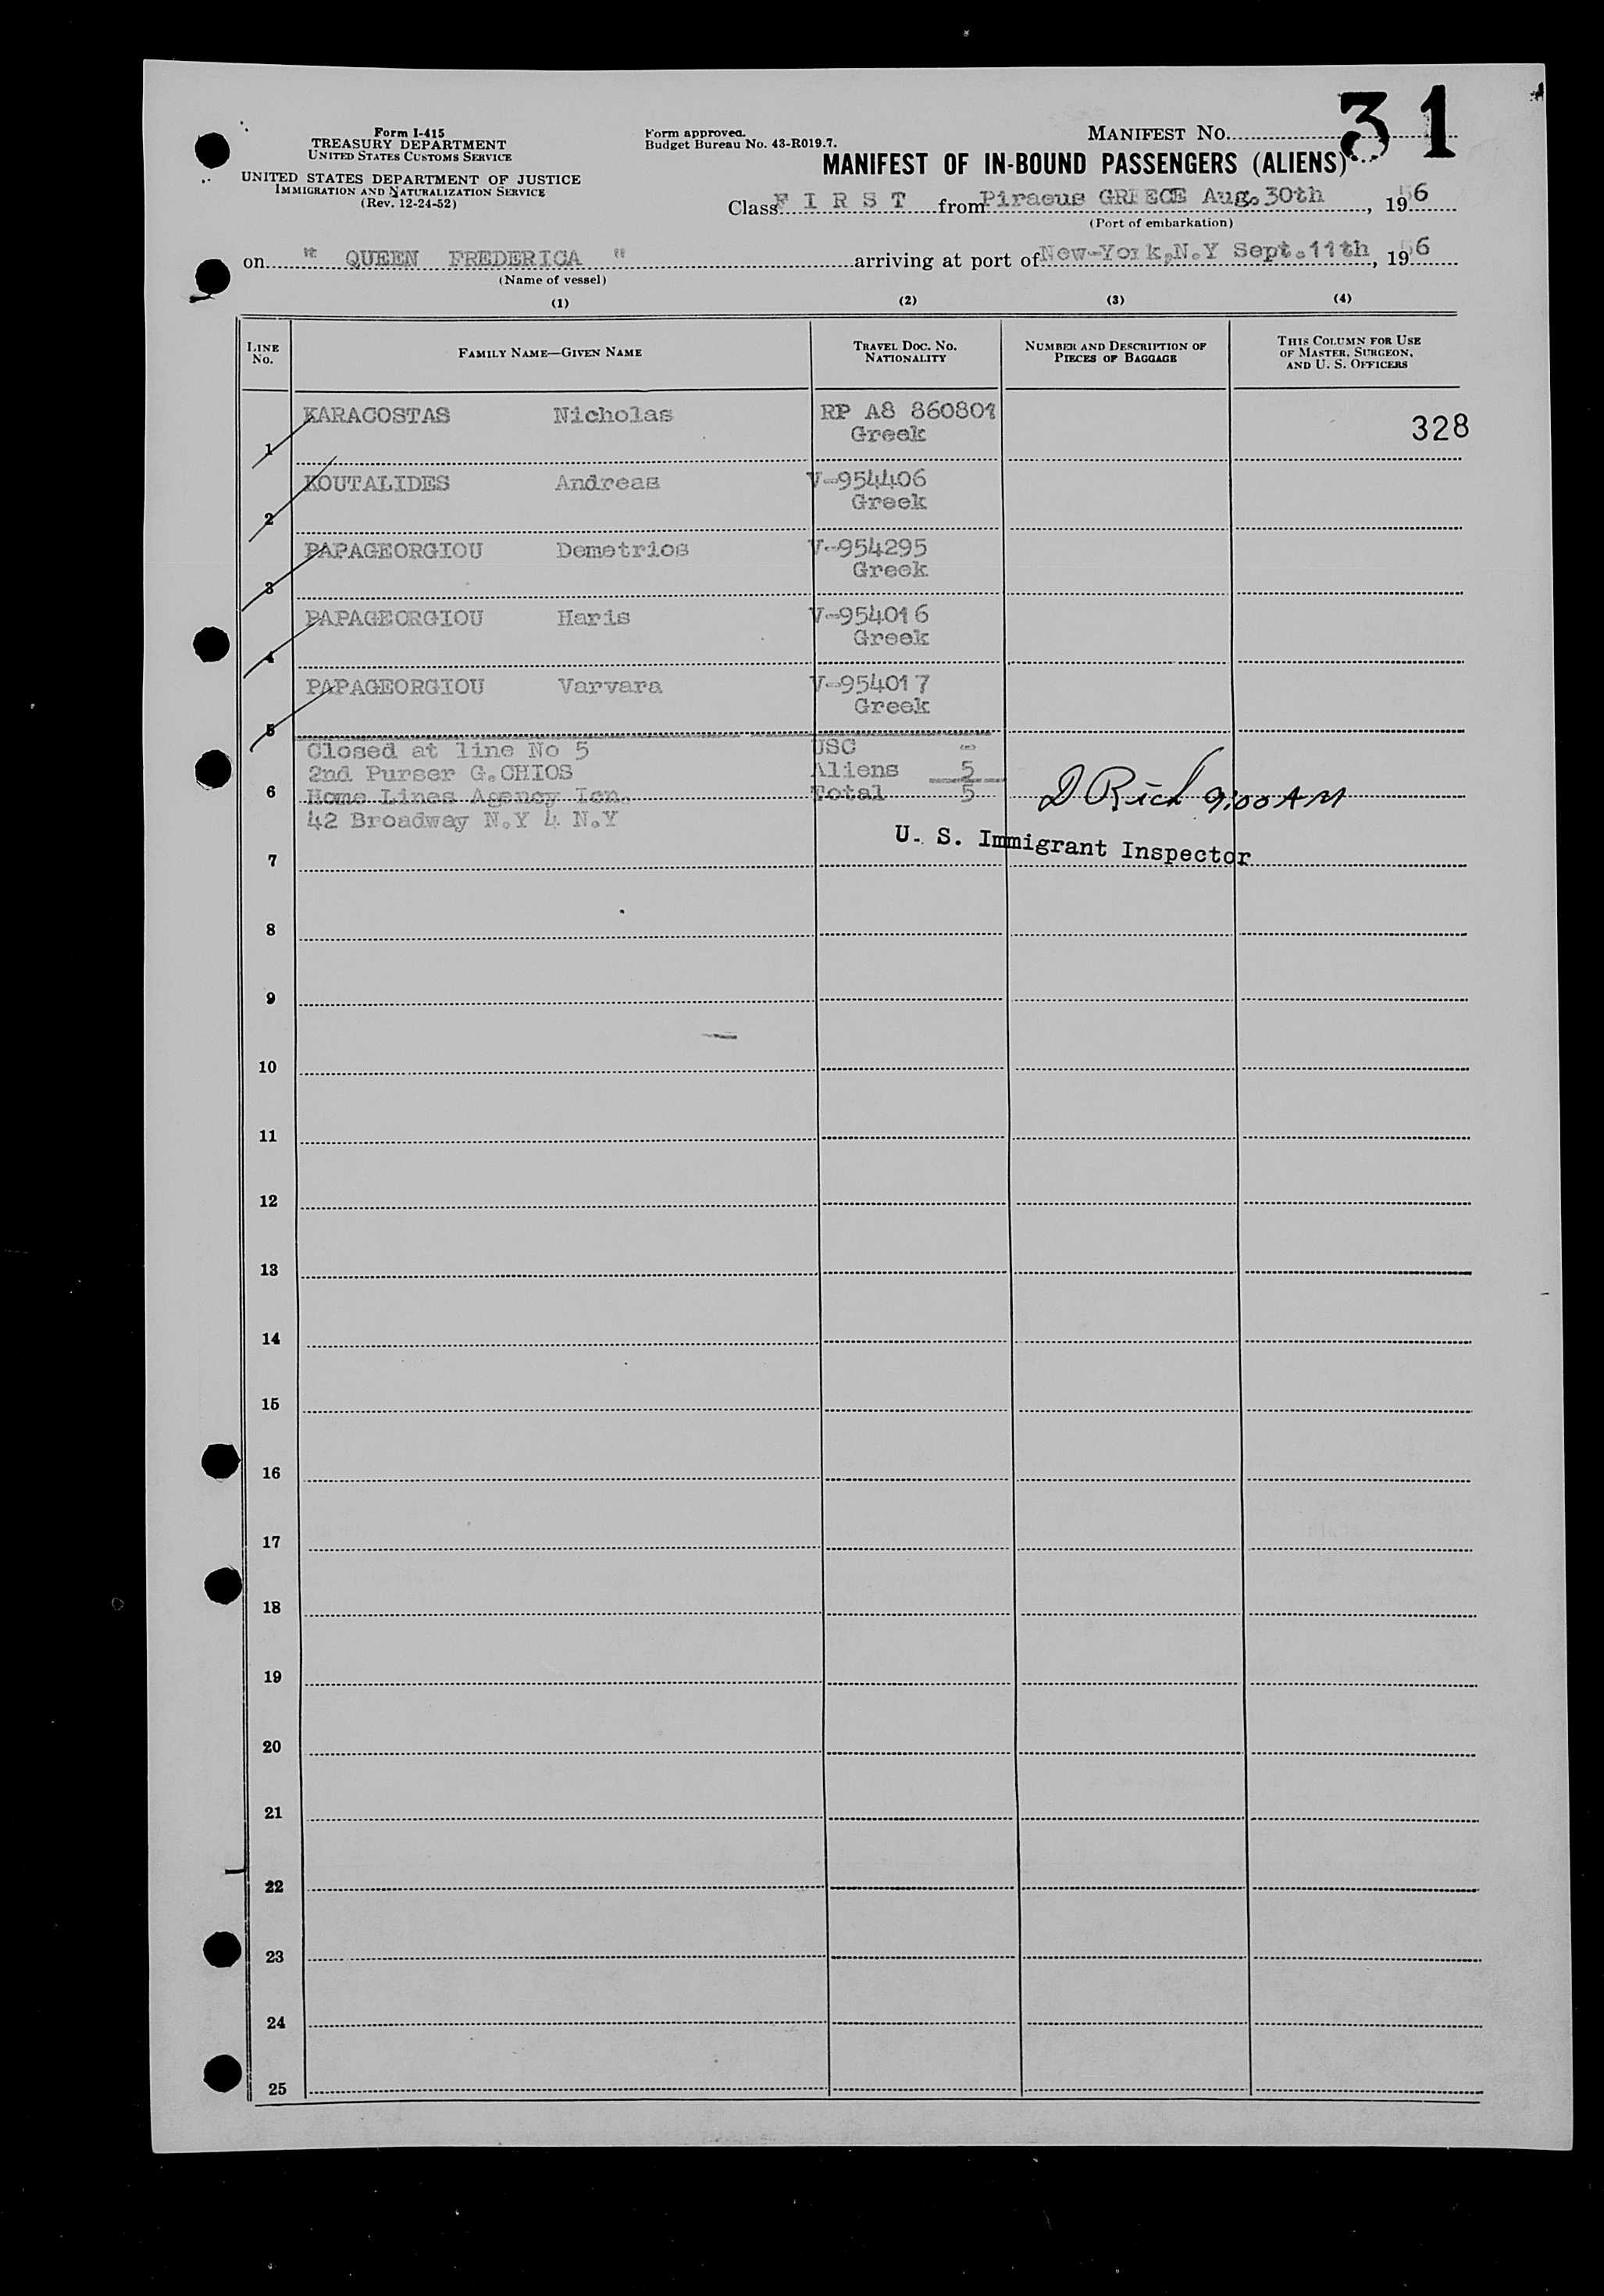 31
Form I-415
TREASURY DEPARTMENT
UNITED STATES CUSTOMS SERVICE
UNITED STATES DEPARTMENT OF JUSTICE
IMMIGRATION AND NATURALIZATION SERVICE
(Rev. 12-24-52)
Form approved.
Budget Bureau No. 43-R019.7.
MANIFEST NO.
MANIFEST OF IN-BOUND PASSENGERS (ALIENS)
Class F I R S T from Piraeus GREECE Aug.30th, 1956
(Port of embarkation)
on " QUEEN FREDERICA " arriving at port of New-York,N.Y Sept.11th, 1956
(Name of vessel)
(1) (2) (3) (4)
LINE NO. FAMILY NAME—GIVEN NAME TRAVEL DOC. NO. NATIONALITY NUMBER AND DESCRIPTION OF PIECES OF BAGGAGE THIS COLUMN FOR USE OF MASTER, SURGEON, AND U. S. OFFICERS
KARAGOSTAS Nicholas RP A8 860801
1 Greek 328
KOUTALIDES Andreas V-954406
2 Greek
PAPAGEORGIOU Demetrios V-954295
3 Greek
PAPAGEORGIOU Haris V-954016
4 Greek
PAPAGEORGIOU Varvara V-954017
5 Greek
Closed at line No 5 USC -
2nd Purser G.CHIOS Aliens 5
6 Home Lines Agency Icn. Total 5 D Rich 9:00 AM
42 Broadway N.Y 4 N.Y
U. S. Immigrant Inspector
7
8
9
10
11
12
13
14
15
16
17
18
19
20
21
22
23
24
25